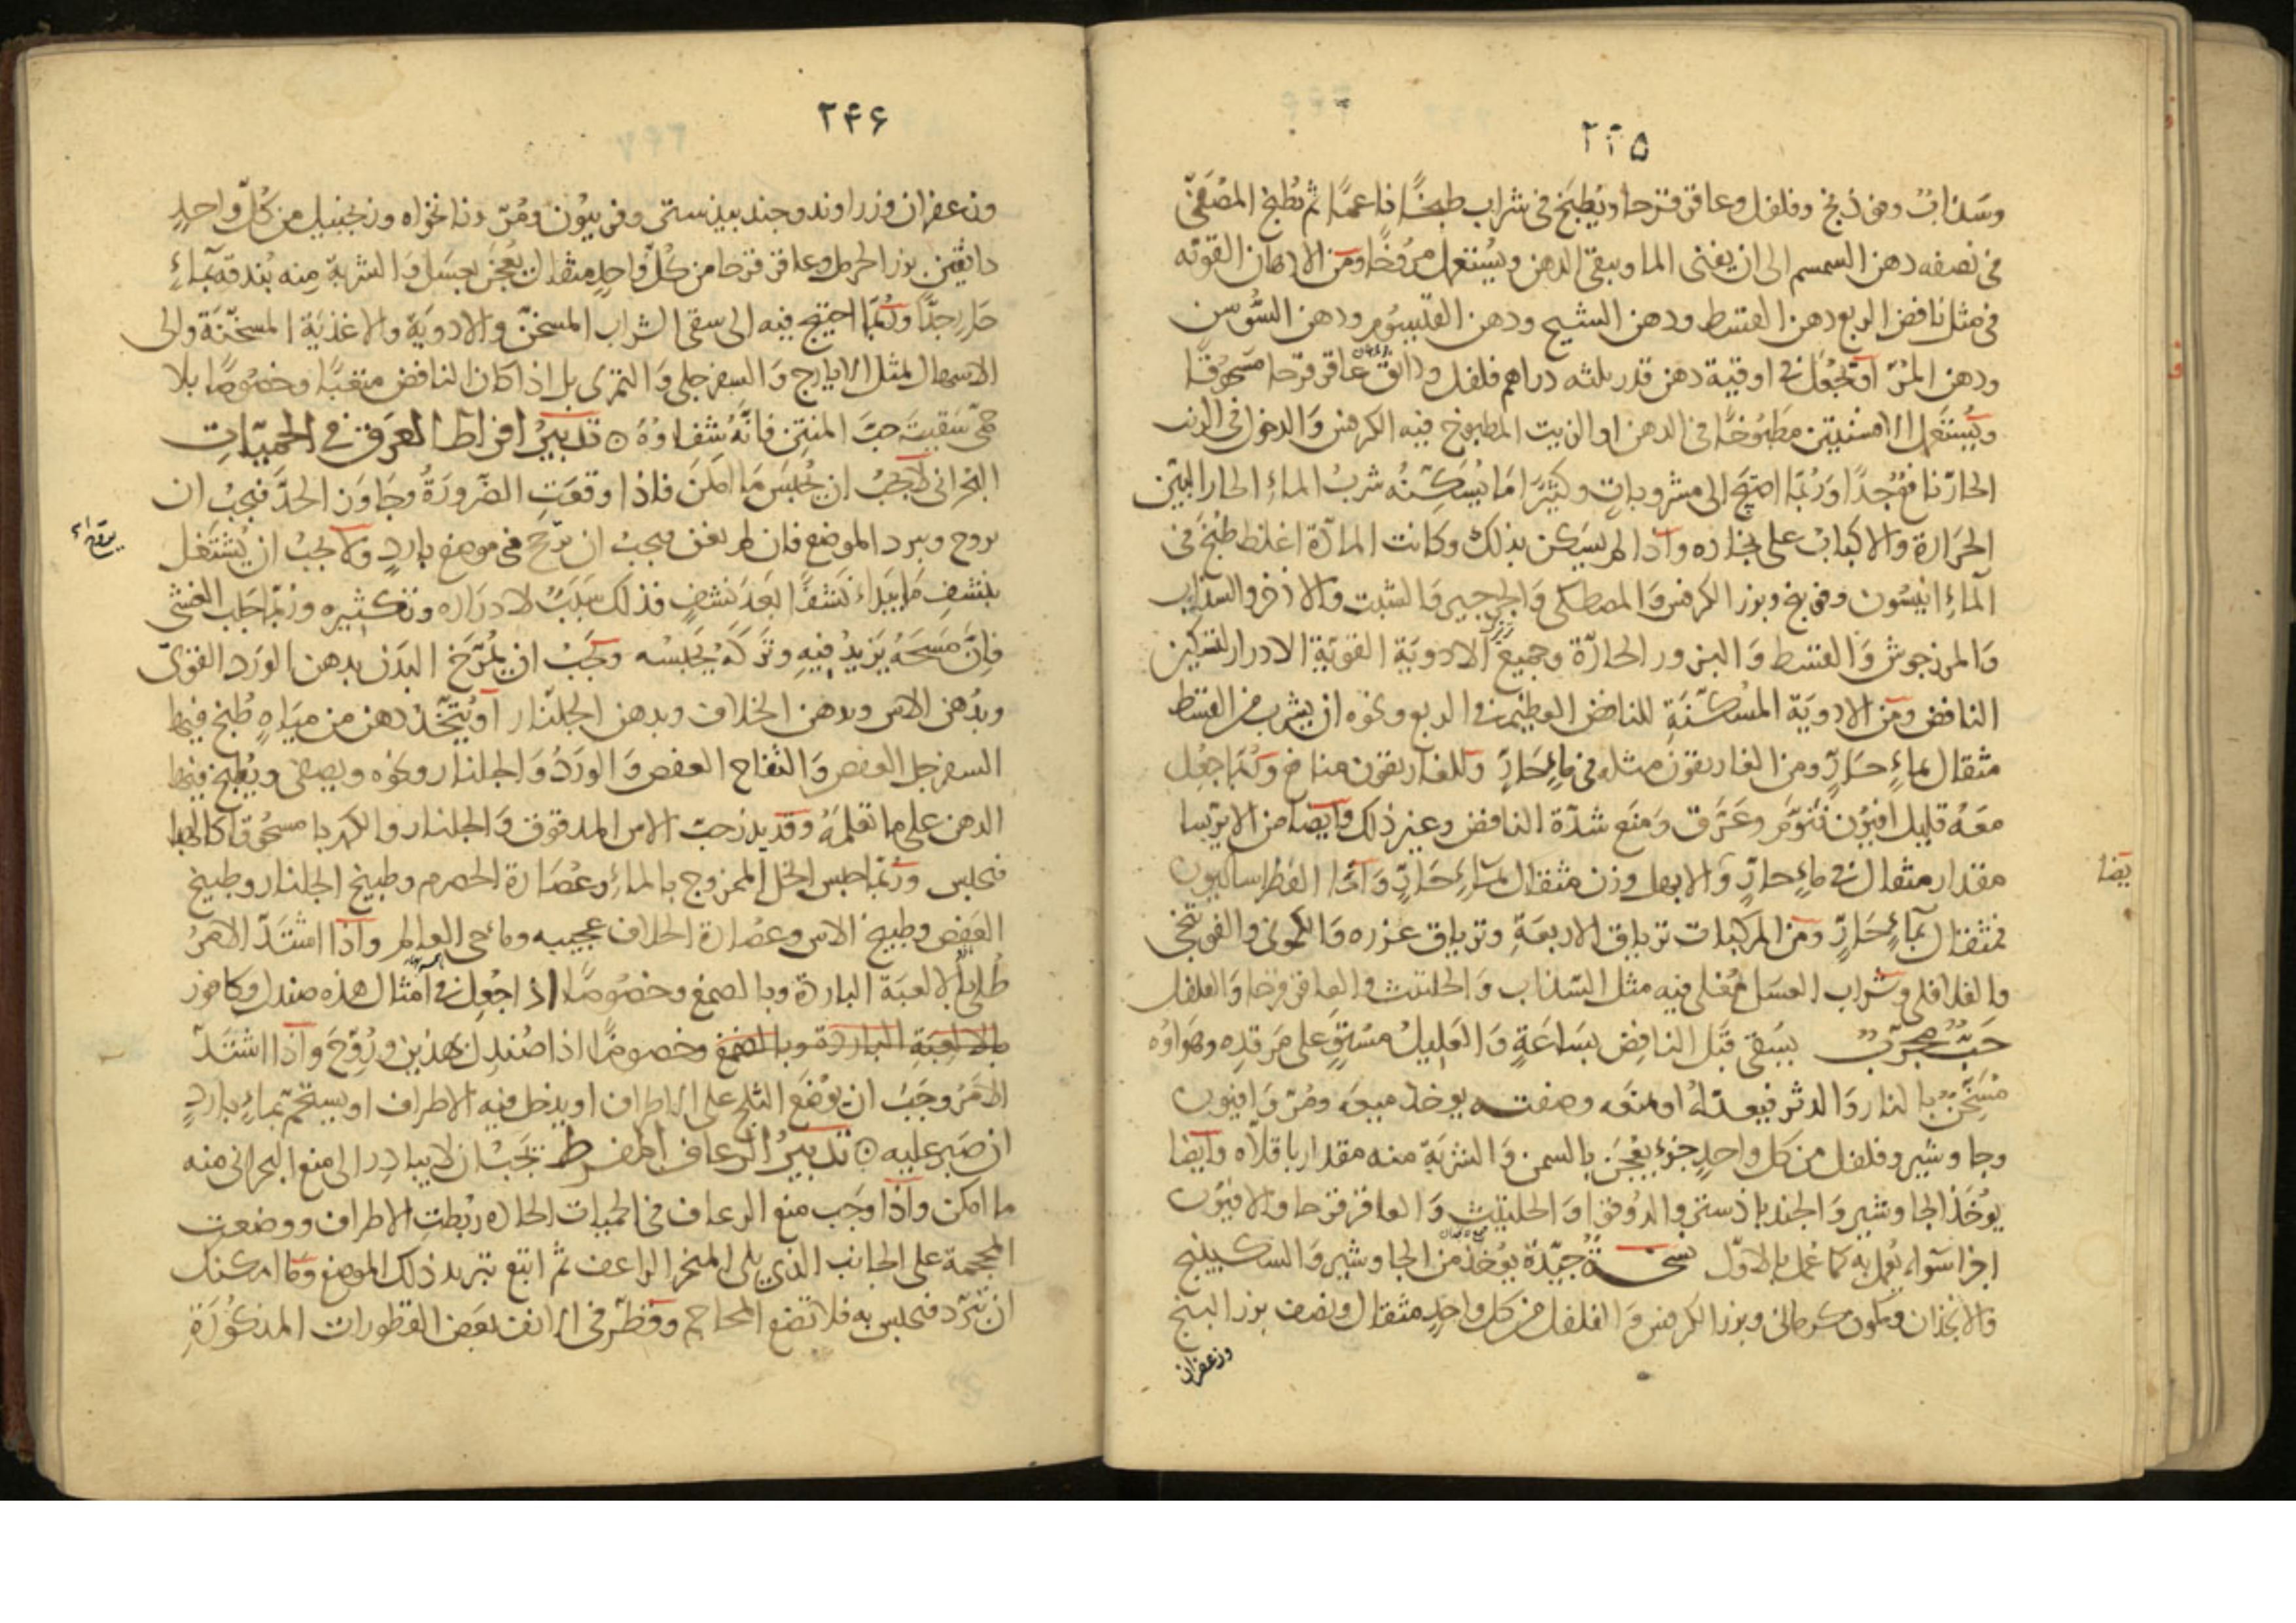 ۲۴۵
وسذاب وفوذنج وفلفل وعاقر قرحا ويطبخ في شراب طبخًا ناعمًا ثم يطبخ المصفّى
في نصفه دهن السمسم الى ان يفنى الما ويبقى الدهن ويُستعمل مروخًا ومن الادهان القويه
في مثل نافض الربع دهن القسط ودهن الشيح ودهن القيسوم ودهن السّوسن
ودهن المُرّ او يُجعل في اوقية دهن قدر ثلثه دراهم فلفل ودانق عاقر قرحا مسحوقًا
ويُستعمل الافسنتين مطبوخًا في الدهن او الزيت المطبوخ فيه الكرفس والدخول في الزيت
الحارّ نافع جدًا ورُبّما احتيج الى مشروبات وكثيرًا مّا يُسكّنُه شربُ الماءِ الحار البيّن
الحرارة والاكبابُ على بخاره واذا لم يسكن بذلك وكانت المادّة اغلظ طُبخَ في
الماءِ انيسون وفوتنج وبزر الكرفس والمصطكى والجرجير والشبت والاذخر والسذاب
والمرزجوش والقسط والبزور الحارّة وجميع الادوية القويّة الادرار لتسكين
النافض ومن الادوية المُسكّنة للنافض العظيم في الربع ونحوه ان يشرب من القسط
مثقال بماءٍ حارٍّ ومن الغاريقون مثله في ماءٍ حارٍّ وللغاريقون منافع ورُبّما جُعل
معَهُ قليل افيون فنوّمَ وعرّق ومنع شدّة النافض وغير ذلك وايضا من الايرسا
يضا
مقدار مثقال في ماءٍ حارٍّ والابهل وزن مثقال بماءٍ حارٍّ وامّا الفطراساليون
فمثقال بماءٍ حارٍّ ومن المركبات ترياق الاربعة وترياق عزره والكمونى والفوتنجى
والفلافلى وشراب العسل مُغلى فيه مثل السّذاب والحلتيت والعاقر قرحا والفلفل
حبٌّ مجرّبٌ يسقى قبل النافض بساعةٍ والعليلُ مُستلقٍ على مرقده وهواؤه
مُسخّنٌ بالنار والدثر فيعدّله او منعه وصفته يوخذ ميعه ومُرّ وافيون
وجاوشير وفلفل من كل واحدٍ جزء يُعجَن بالسمن والشربة منه مقدار باقلاه وايضا
يوُخذ الجاوشير والجندباذستر والدوقوا والحلتيت والعاقر قرحا والافيون
اجزا سواء يُعمل به كما عُمل بالاوّل نسخـةٌ جيّدة يوُخذ من الجاوشير والسكبينج
والانجذان وكمون كرمانى وبزر الكرفس والفلفل من كل واحدٍ مثقال ونصف بزر البنج
وزعفران
۲۴۶
وزعفران وزراوند وجندبيذستر وفربيون ومُرّ ونانخواه وزنجبيل من كُلّ واحدٍ
دانقين بزر الحرمل وعاقر قرحا من كُلّ واحدٍ مثقال يُعجَن بعسل والشربة منه بُندقة بماءٍ
حارٍ جدًّا ورُبّما احتيج فيه الى سقى الشراب المسخّن والادوية والاغذية المسخّنَة والى
الاسهال بمثل الايارج والسفرجلى والتمرى بل اذا كان النافض متعبًا وخصوصًا بلا
حُمّى سقيتَ حبّ المنتن فانّهُ شفاؤهُ ⊙ تدبيرُ افراط العَرَق في الحميّاتِ
البحرانى لا يجبُ ان يُحبَس مَا امكنَ فاذا وقعَتِ الضّرورَةُ وجاوَزَ الحدَّ فيجبُ ان
يروح ويبرد الموضع فان لم يغن فيجبُ ان يروّح في موضع باردٍ ولا يجبُ ان يُشتغل
بنشفِ مَا يبداء نشفًا بَعدَ نشفٍ فذلك سببٌ لادراره وتكثيره ورُبّما جلب الغشى
فانّ مَسحَهُ يزيدُ فيه وتركَهُ يحبسُه ويجبُ ان يُمرّخ البدَن بدهن الورد القوىّ
وبدُهن الاس وبدهن الخلاف وبدهن الجلنّار او يُتّخذ دهن من مياهٍ طُبخ فيها
السفرجل العفص والتفاح العفص والورد والجلنار ونحوه ويصفى ويُطبخ فيها
الدهن على ما تعلمُهُ وقد يذر حبّ الاس المدقوق والجلنار والكهربا مسحُوقًا كالهبا
فيحبس ورُبّما حبس الخل الممزوج بالماءِ وعُصارة الحصرم وطبيخ الجلنار وطبيخ
العفص وطبيخ الاس وعصارة الخلاف عجيبه وماء حى العالم واذا اشتدّ الامرُ
طُلى بالالعبة الباردة وبالصمغ وخصوصًا اذا جُعل في امثال هذه صندل وكافور
بالالعبة الباردة وبالصمغ وخصوصًا اذا صُندل بهذين ورُوّحَ واذا اشتدّ
الامرُ وجَبَ ان يُوضع الثلج على الاطراف او يدخل فيه الاطراف او يستحم بماءٍ باردٍ
ان صَبَر عليه ⊙ تدبيرُ الرعاف المفرط يجبُ ان لا يبادر الى منع البحرانى منه
ما امكن واذا وجَب منع الرعاف في الحميات الحاره رُبطتِ الاطراف ووضعت
المحجمة على الجانب الذى يلى المنخر الراعف ثم اتبع تبريد ذلك الموضع وما امكنك
ان تبرّد فيحبس به فلا تضع المحاجم وقطّر في الانف بعض القطورات المذكورَةِ